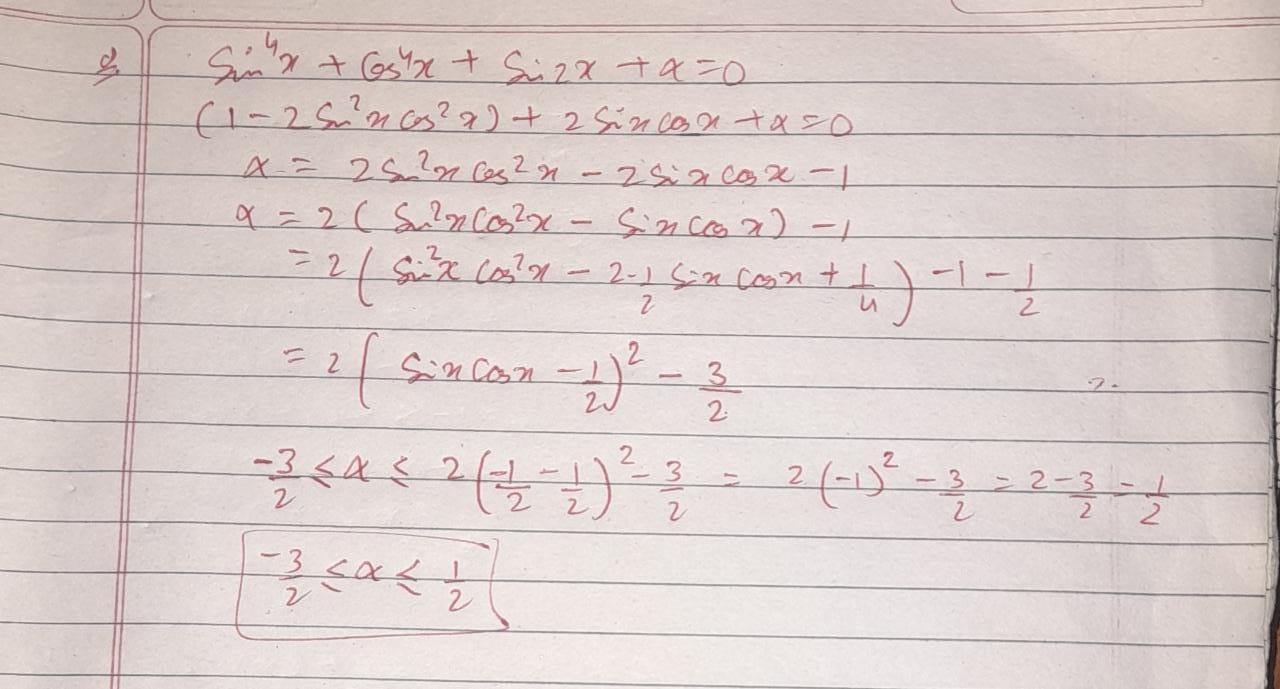 Q. Sin⁴x + Cos⁴x + Sin2x + α = 0
(1 - 2 Sin²x cos²x) + 2 Sinx cosx + α = 0
α = 2 Sin²x Cos²x - 2 Sinx cosx - 1
α = 2 ( Sin²x Cos²x - Sinx Cosx ) - 1
= 2 ( Sin²x Cos²x - 2·1/2 Sinx Cosx + 1/4 ) - 1 - 1/2
= 2 ( Sinx Cosx - 1/2 )² - 3/2
-3/2 ≤ α ≤ 2 ( -1/2 - 1/2 )² - 3/2 = 2 (-1)² - 3/2 = 2 - 3/2 = 1/2
-3/2 ≤ α ≤ 1/2